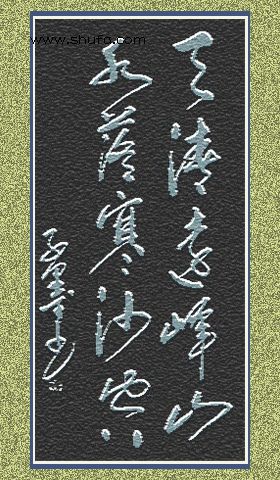 www.shufa.com
天清遠峰出
水落寒沙空